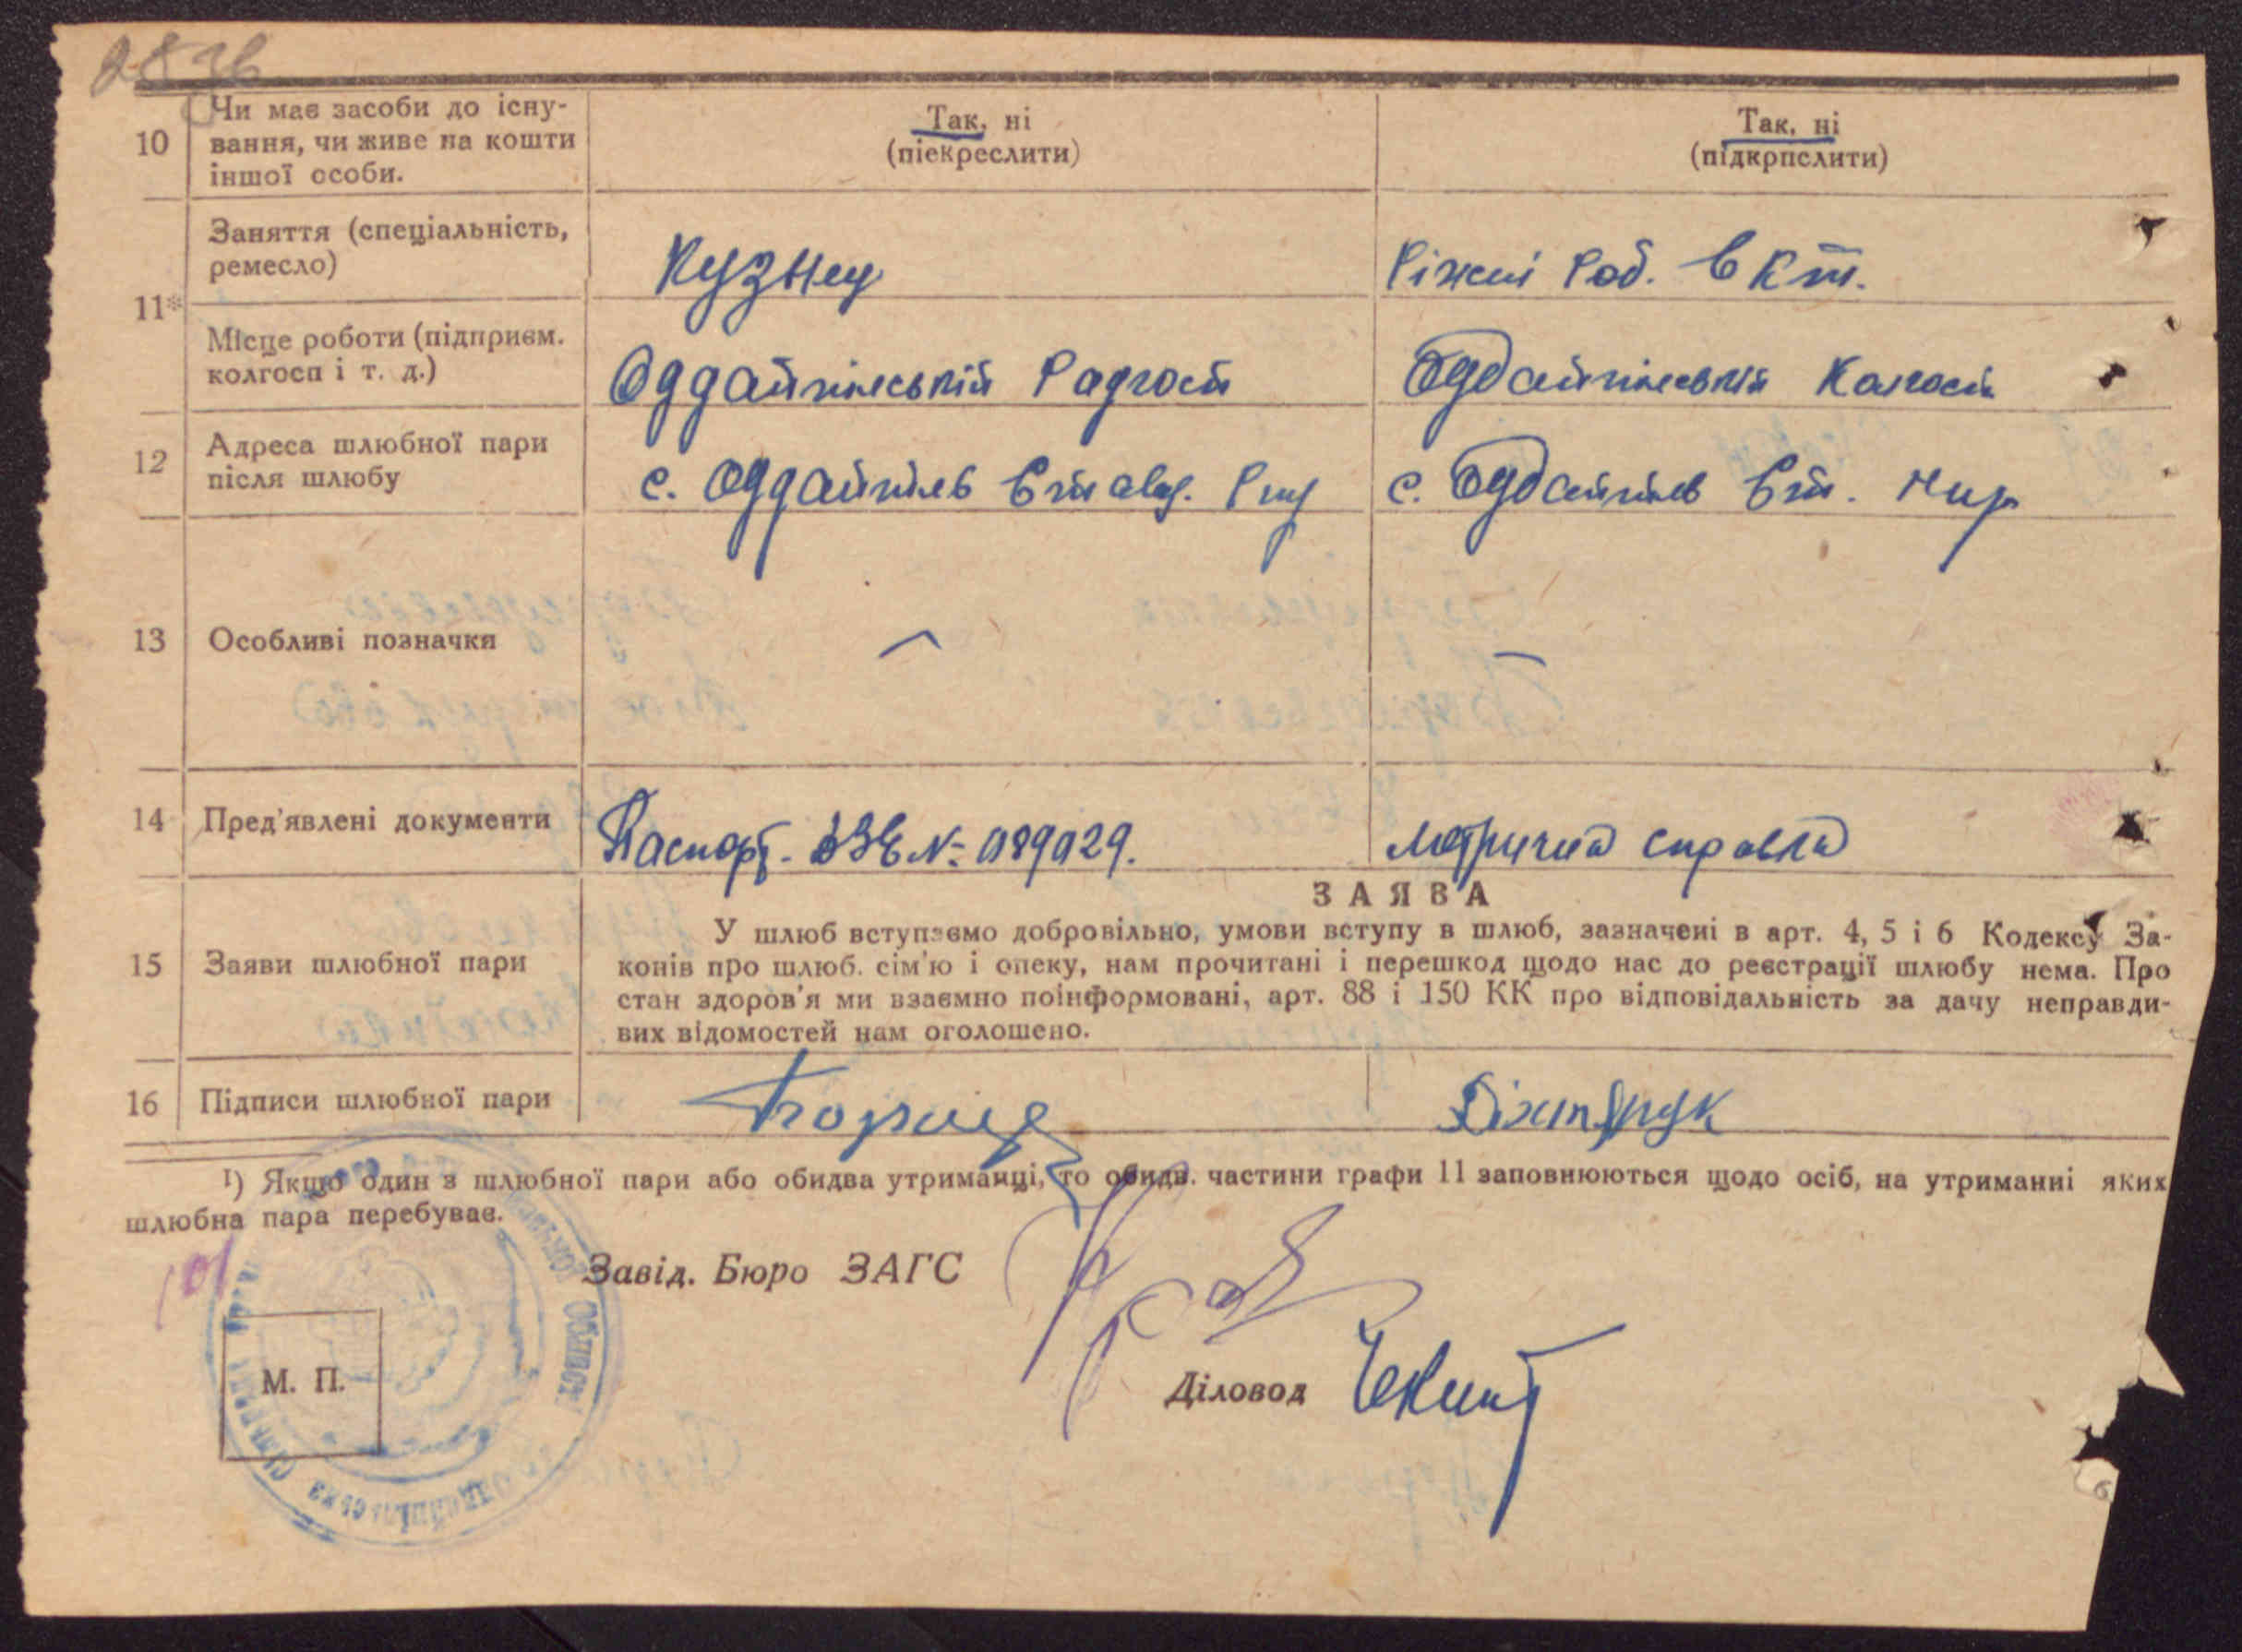 10
Чи має засоби до існу-
вання, чи живе на кошти
іншої особи.
Так, ні
(піекреслити)
Так, ні
(підкрпслити)
11*
Заняття (спеціальність,
ремесло)
Кузнец
Ріжні Роб. в
Місце роботи (підприєм.
колгосп і т. д.)
Оддайпільській Радгосп
Оддайпільській Колгосп
12
Адреса шлюбної пари
після шлюбу
с. Оддайпіль
с. Оддайпіль
13
Особливі позначки
–
–
14
Пред'явлені документи
Паспорт. №
метрична справка
ЗАЯВА
15
Заяви шлюбної пари
У шлюб вступаємо добровільно, умови вступу в шлюб, зазначені в арт. 4, 5 і 6 Кодексу За-
конів про шлюб. сім'ю і опеку, нам прочитані і перешкод щодо нас до реєстрації шлюбу нема. Про
стан здоров'я ми взаємно поінформовані, арт. 88 і 150 КК про відповідальність за дачу неправди-
вих відомостей нам оголошено.
16
Підписи шлюбної пари
¹) Якщо один з шлюбної пари або обидва утриманці, то обидв. частини графи 11 заповнюються щодо осіб, на утриманні яких
шлюбна пара перебуває.
Завід. Бюро ЗАГС
М. П.
Діловод